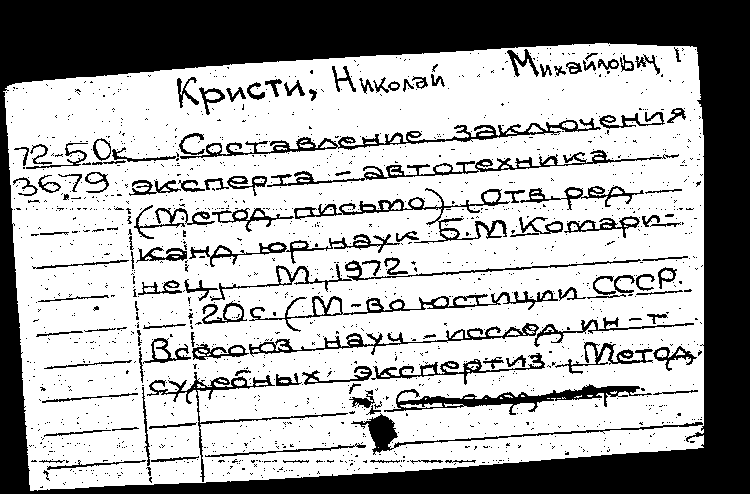 Кристи, Николай Михайлович
72-50к Составление заключения
3679 эксперта - автотехника
(Метод. письмо). [Отв. ред.
канд. юр. наук Б.М. Комари-
нец]. М., 1972.
20с. (М-во юстиции СССР.
Всесоюз. науч.-исслед. ин-т
судебных экспертиз. [Метод.